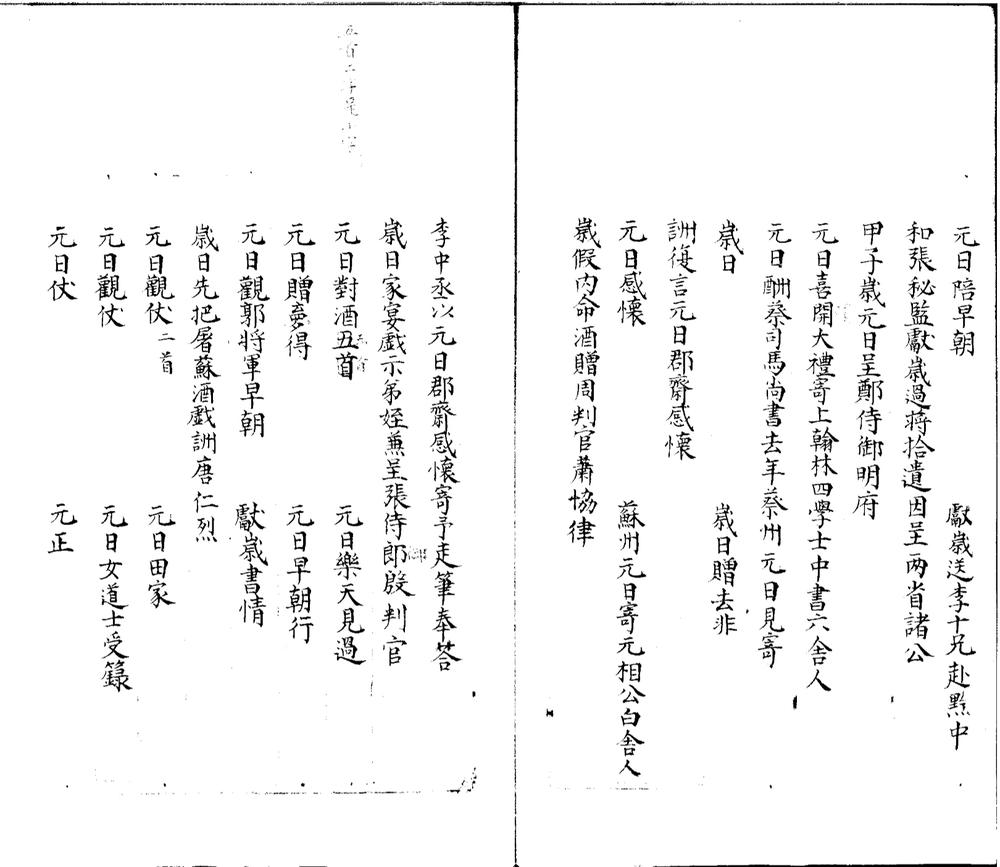 元日陪早朝　獻歲送李十兄赴黔中
和張秘監獻歲過蔣拾遺因呈兩省諸公
甲子歲元日呈鄭侍御明府
元日喜聞大禮寄上翰林四學士中書六舍人
元日酬蔡州馬尚書去年蔡州元日見寄
歲日　歲日贈去非
詶復言元日郡齋感懷
元日感懷　蘇州元日寄元相公白舍人
歲假內命酒贈周判官蕭協律
李中丞以元日郡齋感懷寄予走筆奉荅
歲日家宴戲示弟姪兼呈張侍郎殷判官
元日對酒五首　元日樂天見過
元日贈夢得　元日早朝行
元日觀郭將軍早朝　獻歲書情
歲日先把屠蘇酒戲詶唐仁烈
元日觀仗二首　元日田家
元日觀仗　元日女道士受籙
元日仗　元正